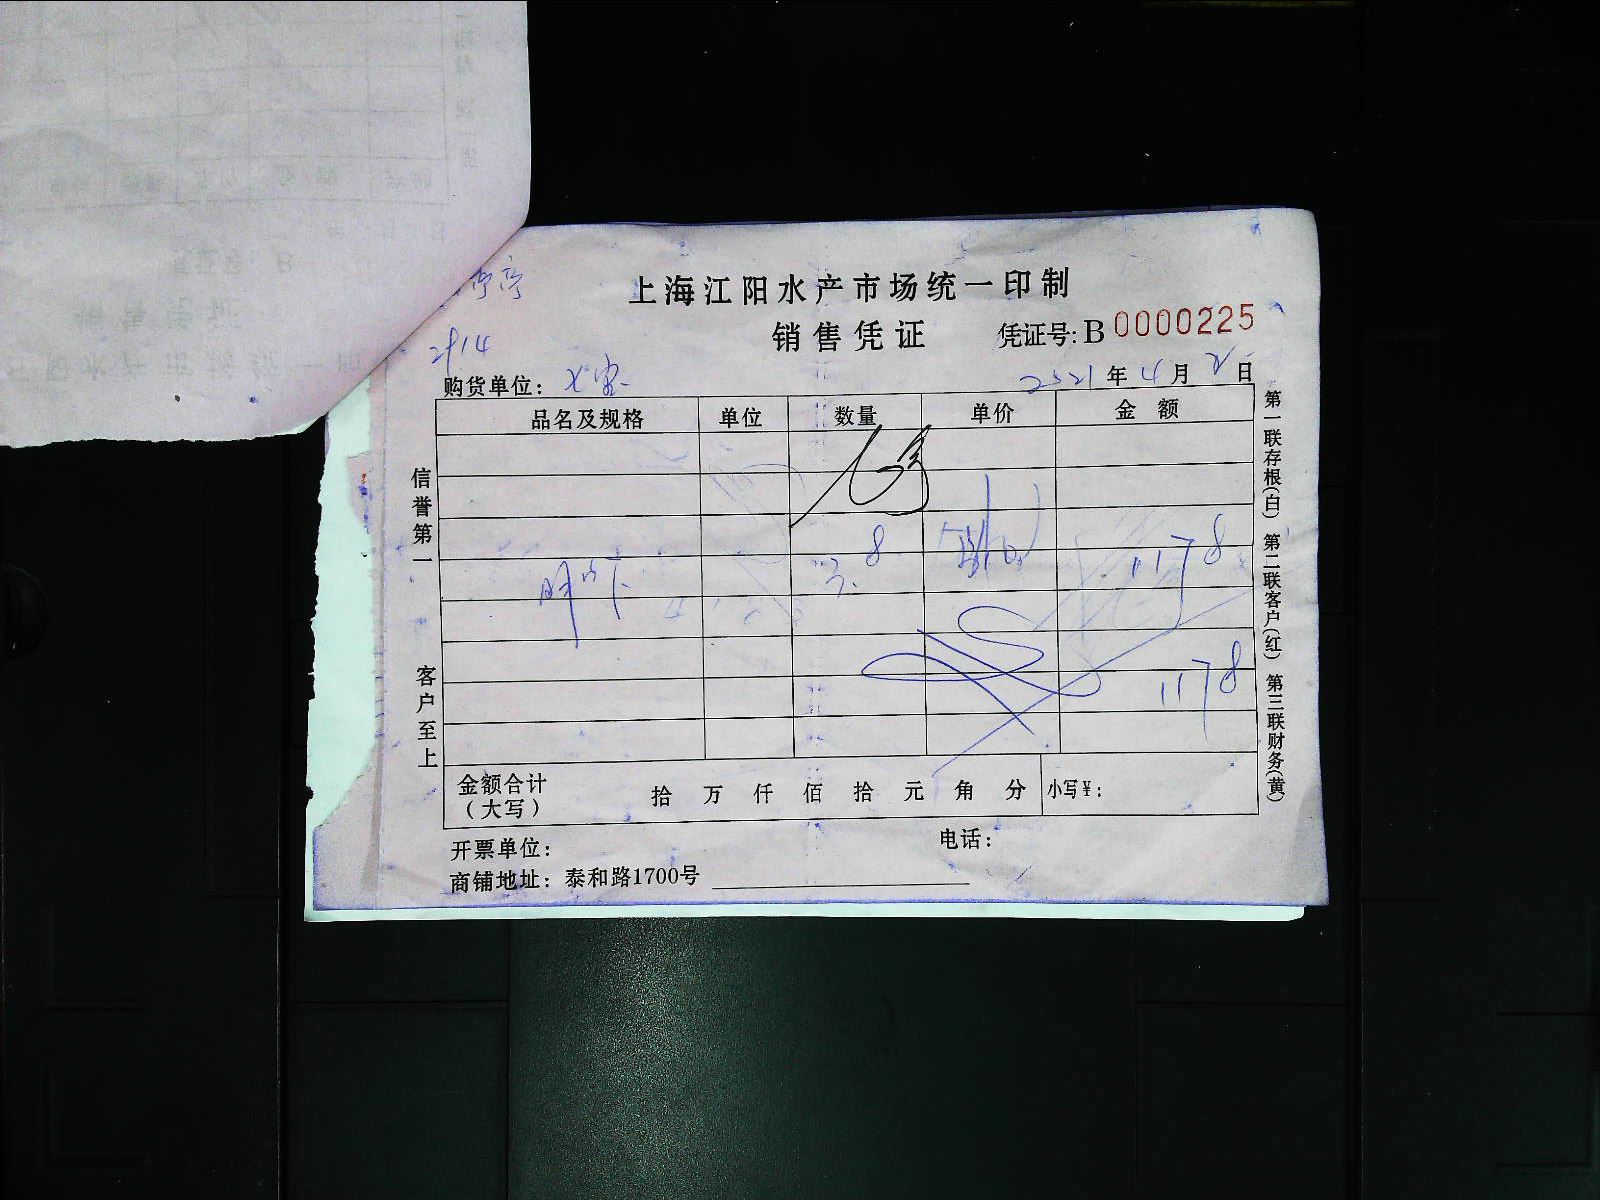 上海江阳水产市场统一印制
销售凭证 凭证号: B 0000225
2114
购货单位: 2021 年 4 月 2 日
品名及规格 单位 数量 单价 金额
1178
1178
金额合计
(大写) 拾 万 仟 佰 拾 元 角 分 小写¥:
开票单位: 电话:
商铺地址: 泰和路1700号
信誉第一
客户至上
第一联存根(白) 第二联客户(红) 第三联财务(黄)